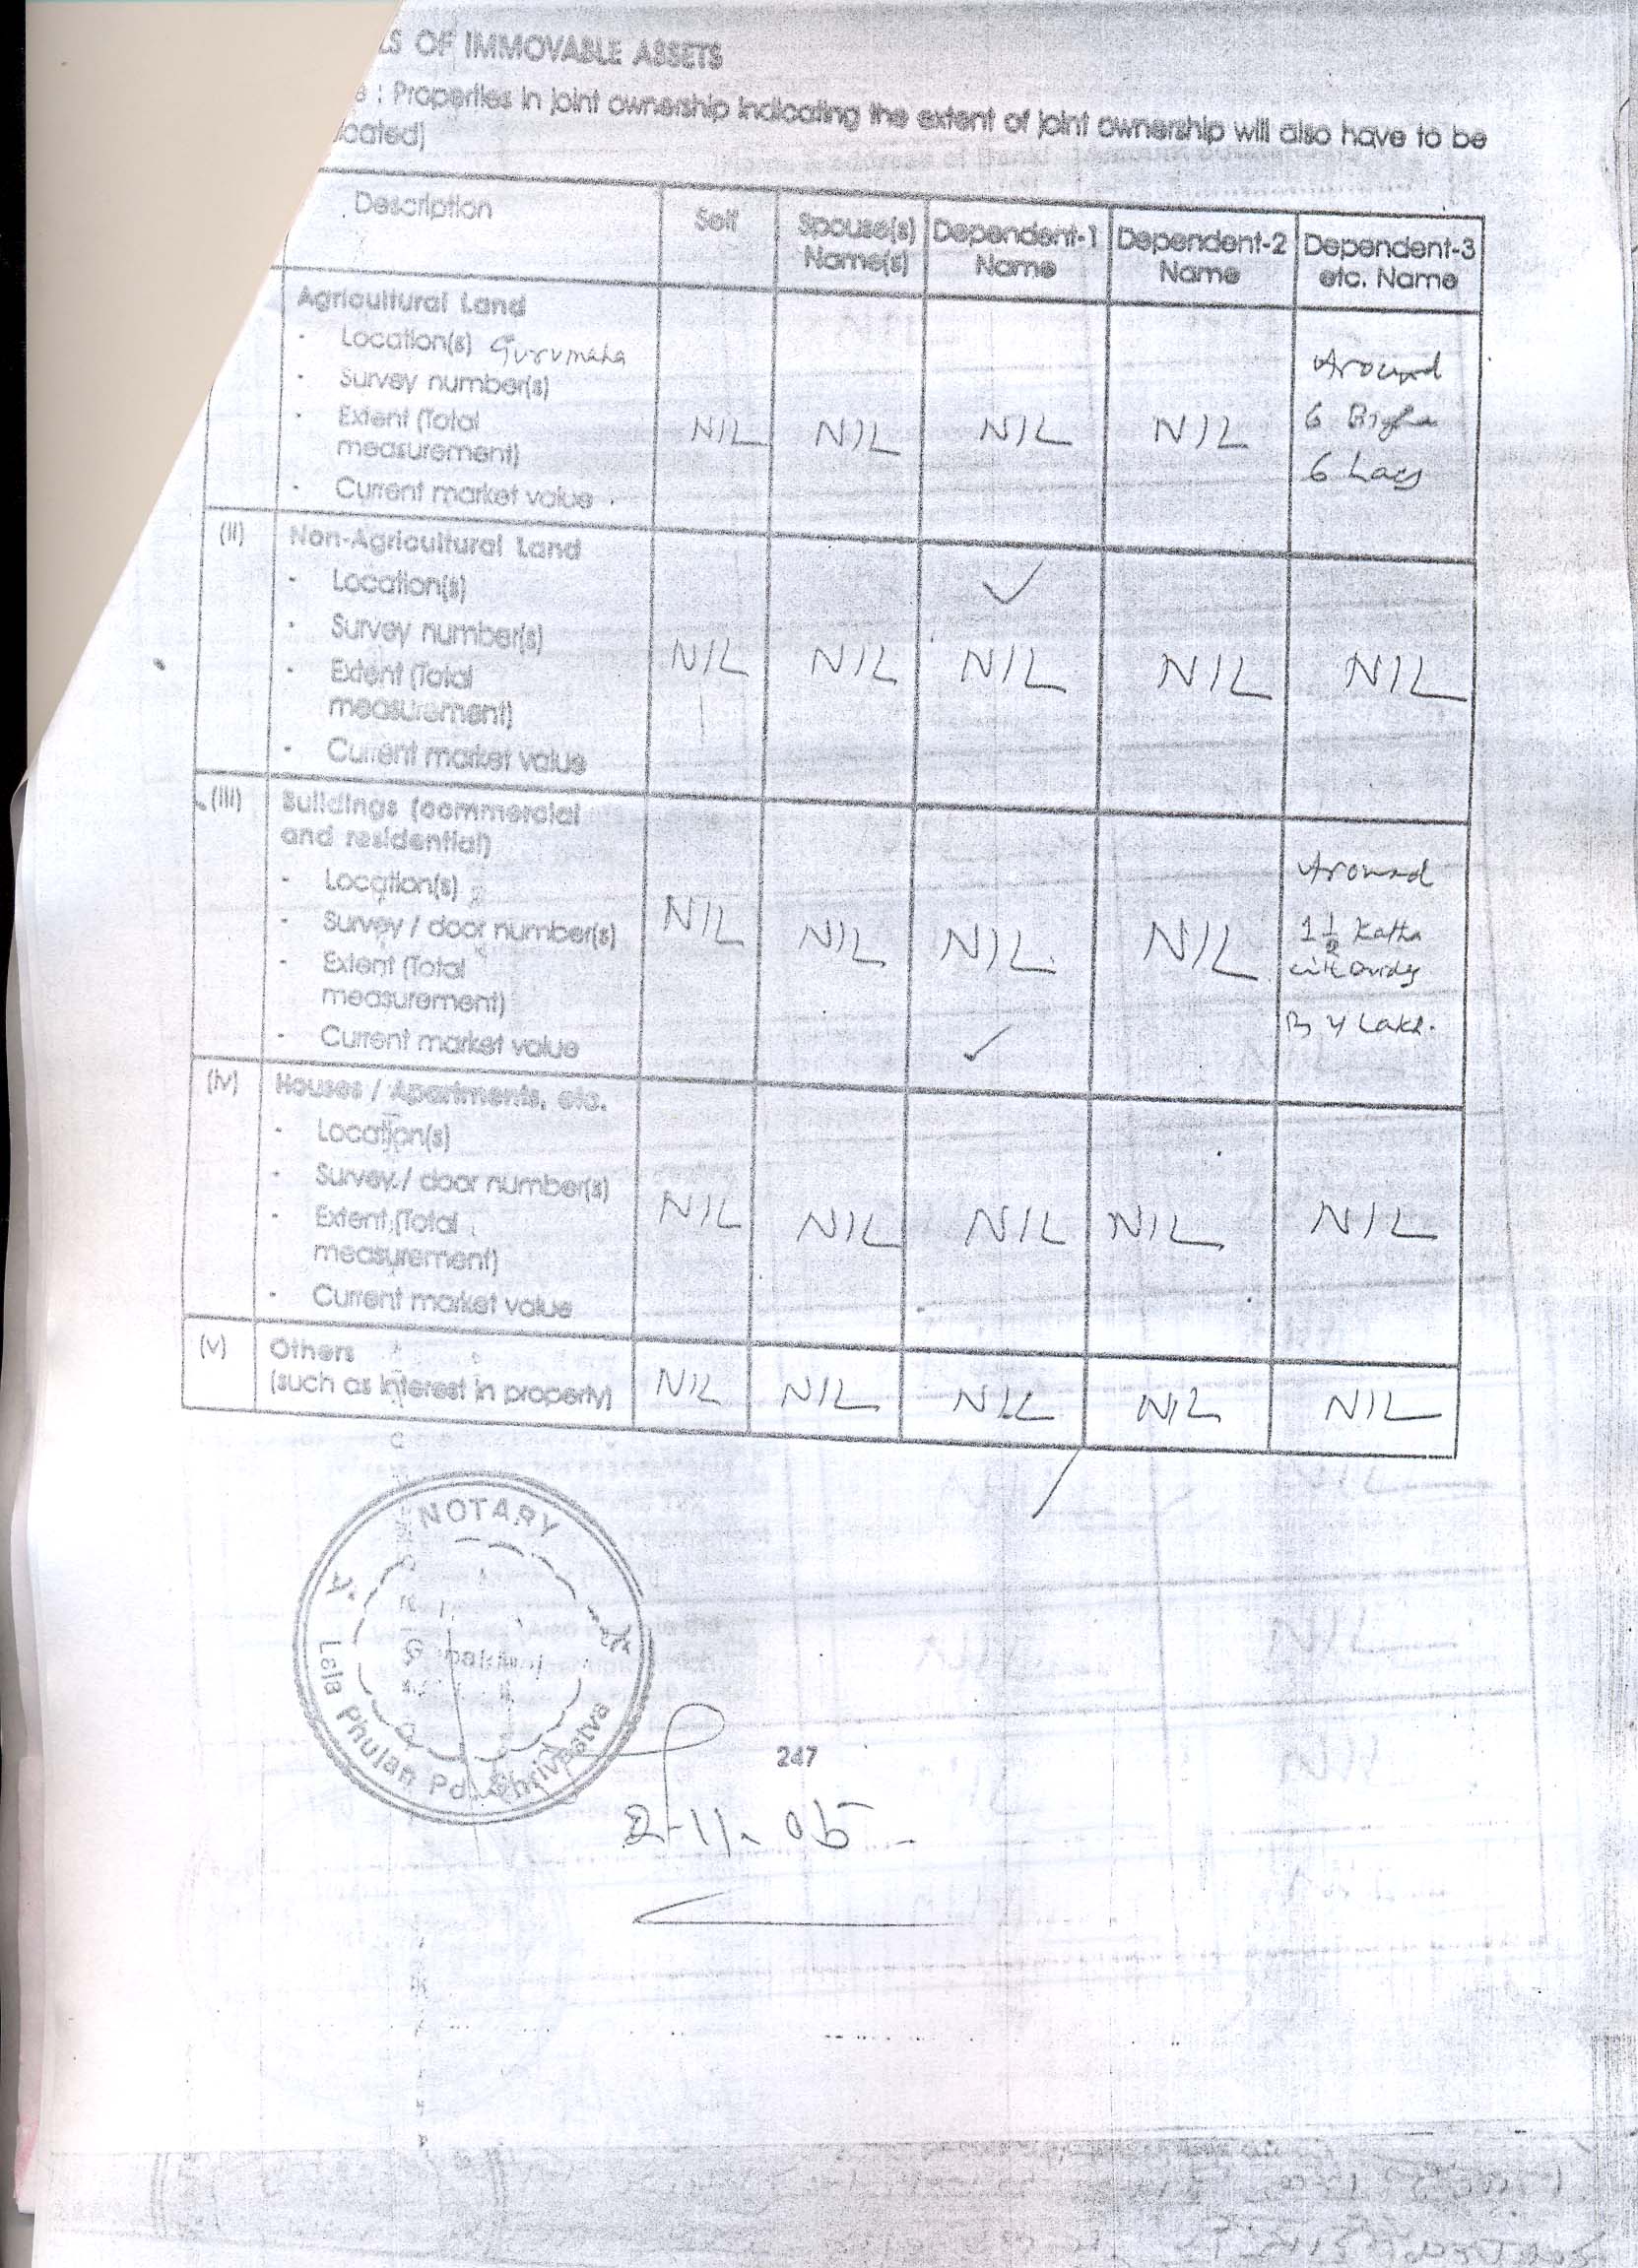 LS OF IMMOVABLE ASSETS
: Properties in joint ownership indicating the extent of joint ownership will also have to be
icated)
Description Self Spouse(s) Name(s) Dependent-1 Name Dependent-2 Name Dependent-3 etc. Name
Agricultural Land
- Location(s) Gurumaha
- Survey number(s)
- Extent (Total
measurement)
- Current market value
NIL NIL NIL NIL Around
6 Bigha
6 Lacs
(ii) Non-Agricultural Land
- Location(s)
- Survey number(s)
- Extent (Total
measurement)
- Current market value
NIL NIL NIL NIL NIL
(iii) Buildings (commercial
and residential)
- Location(s)
- Survey / door number(s)
- Extent (Total
measurement)
- Current market value
NIL NIL NIL NIL Around
1 1/2 Katha
4 Lakh.
(iv) Houses / Apartments, etc.
- Location(s)
- Survey / door number(s)
- Extent (Total
measurement)
- Current market value
NIL NIL NIL NIL NIL
(v) Others
(such as interest in property)
NIL NIL NIL NIL NIL
NOTARY
Lala Phulan Pd. Shrivastva
247
2-11-05